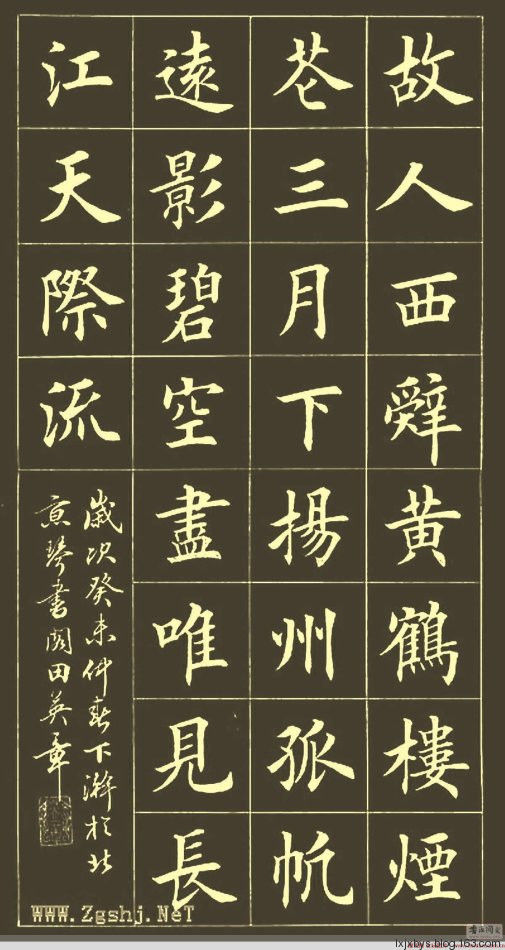 故人西辭黄鶴樓煙
花三月下揚州孤帆
遠影碧空盡唯見長
江天際流
歲次癸未仲春下澣於北
京琴書閣田英章
WWW.Zgshj.NeT
lxjxbys.blog.163.com